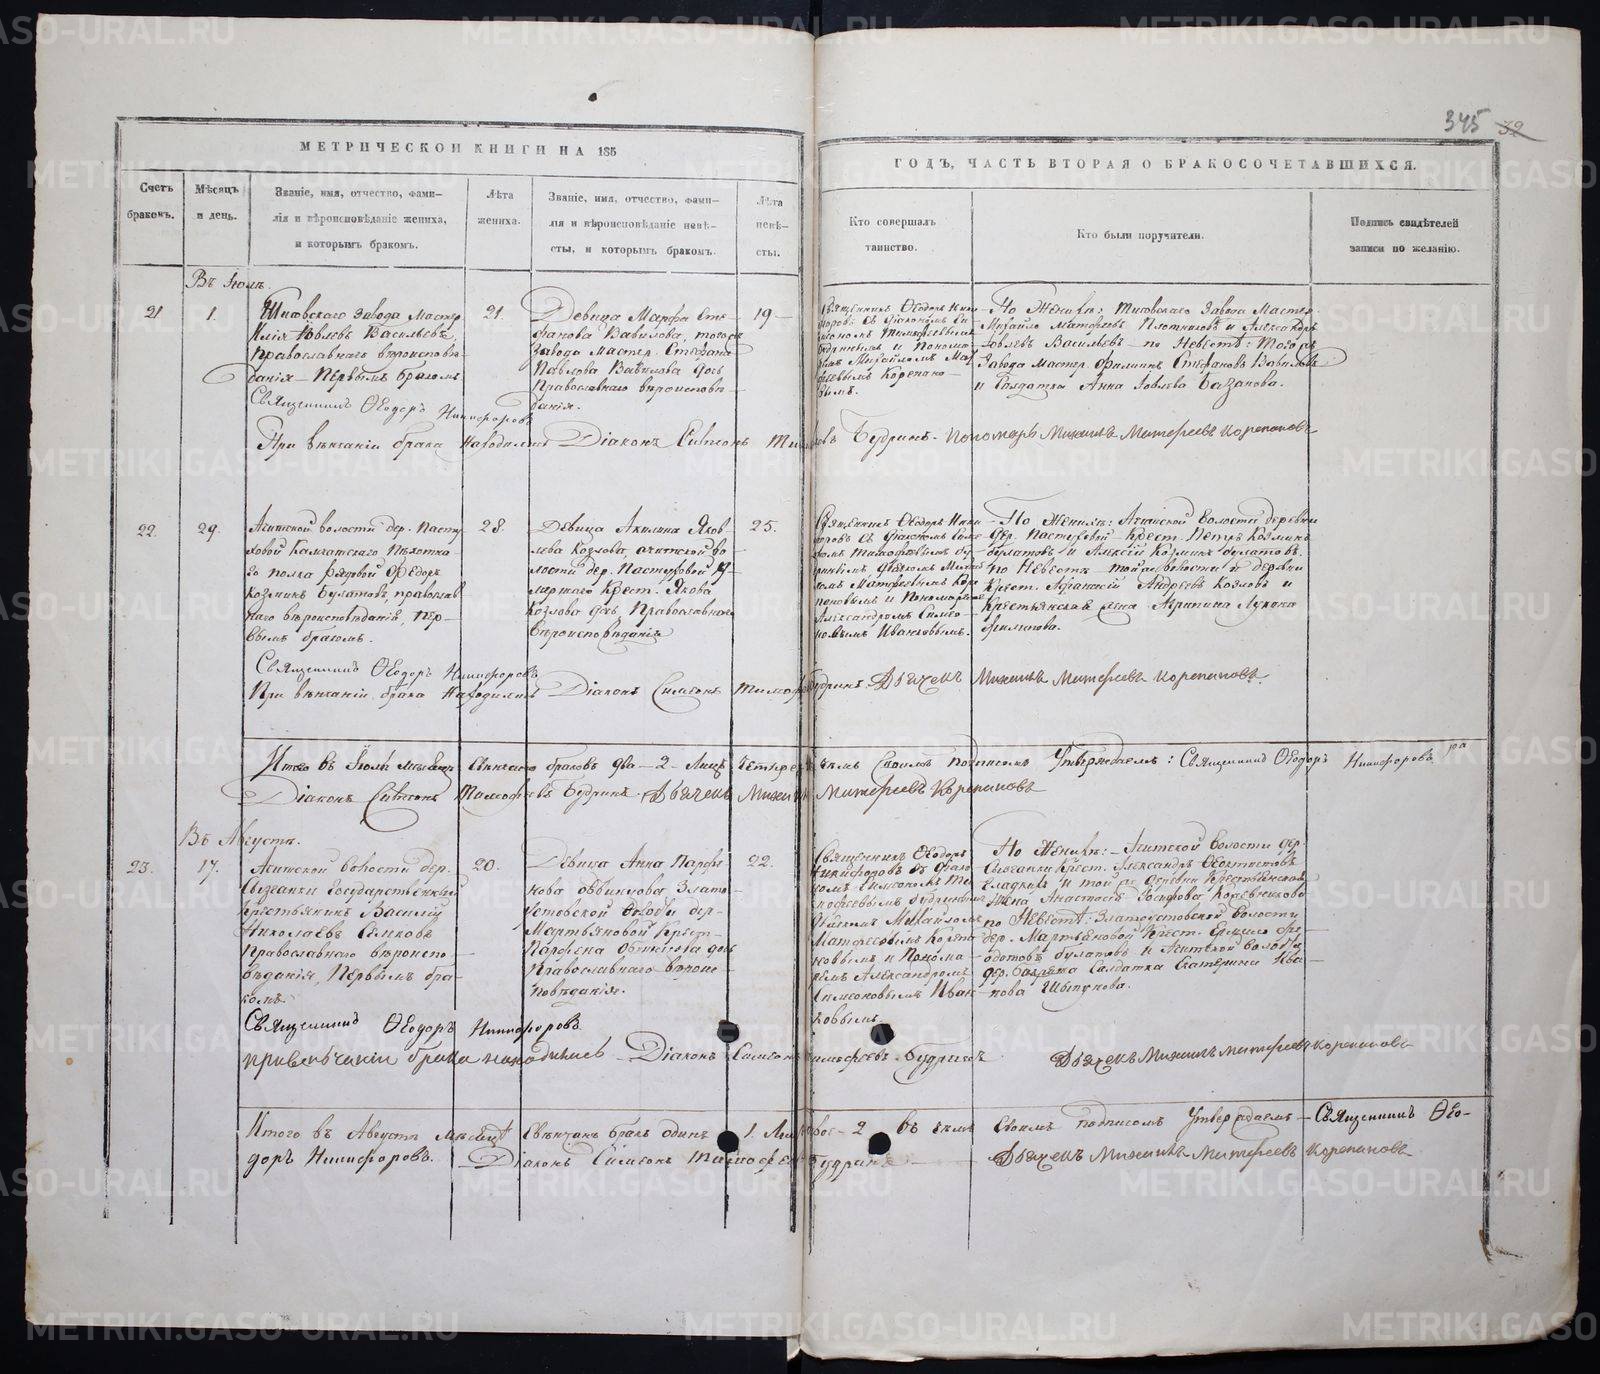 345 32
МЕТРИЧЕСКОЙ КНИГИ НА 185
ГОДЪ, ЧАСТЬ ВТОРАЯ О БРАКОСОЧЕТАВШИХСЯ.
Счетъ браковъ.
Мѣсяцъ и день.
Званіе, имя, отчество, фами-
лія и вѣроисповѣданіе жениха,
и которымъ бракомъ.
Лѣта жениха.
Званіе, имя, отчество, фами-
лія и вѣроисповѣданіе невѣ-
сты, и которымъ бракомъ.
Лѣта невѣ-
сты.
Кто совершалъ
таинство.
Кто были поручители.
Подпись свидѣтелей
записи по желанію.
Въ Іюлѣ.
21
1.
завода Мастер
Васильевъ,
Православнаго вѣроисповѣ-
данія – Первымъ бракомъ
21.
Девица Марфа Сте-
фанова Вавилова, тогожъ
Завода Мастер. Стефана
Павлова Вавилова дочь
Православнаго вѣроисповѣ-
данія.
19
Священникъ Ѳеодоръ Ники-
форовъ съ Діакономъ Си-
меономъ Тимофеевымъ
Будринымъ и Поном-
Михайломъ Мат-
феевымъ Корепано-
вымъ.
По Женихѣ: Завода Мастер.
Михайло Матфеевъ Плотниковъ и Александръ
Васильевъ – по Невестѣ: Тогожъ
Завода Мастер. Филипъ Стефановъ Вавиловъ
и Солдатка Анна Базанова.
Священникъ Ѳеодоръ Никифоровъ
При вѣнчаніи брака находились Діаконъ Симеонъ Будринъ. Пономарь Михаилъ Матфеевъ Корепановъ
22.
29.
Ачитской волости дер. Пасту-
ховой Камчатскаго Пѣхотна-
го полка рядовой Ѳедоръ
Козминъ Булатовъ, православ
наго вѣроисповѣданія, пер-
вымъ бракомъ.
28.
Девица Акилина Яков-
лева Козлова, Ачитской во-
лости дер. Пастуховой
Крест. Якова
Козлова дочь, Православнаго
Вѣроисповѣданія
25.
Священникъ Ѳеодоръ Ники
форовъ съ Діакономъ Симе-
ономъ Тимофѣевымъ Бу-
дринымъ дьячкомъ Михай
ломъ Матфеевымъ Коре
пановымъ и Пономаремъ
Александромъ Симео-
новымъ Иванковымъ.
По Женихѣ: Ачитской Волости деревни
Пастуховой Крест. Петръ Козминъ
Булатовъ и Алексій Козминъ Булатовъ.
по Невестѣ той же волости и деревни
Крест. Афанасій Андреевъ Козловъ и
Крестьянская жена Агрипина Лукина
Филипова.
Священникъ Ѳеодоръ Никифоровъ
При вѣнчаніи брака находились Діаконъ Симеонъ Тимофеевъ Будринъ. Дьячекъ Михаилъ Матфеевъ Корепановъ.
Итого въ Іюлѣ мѣсяцѣ вѣнчано браковъ два – 2 – Лицъ четыре въ чемъ Своимъ подписомъ Утверждаемъ: Священникъ Ѳеодоръ Никифоровъ
Діаконъ Симеонъ Тимофеевъ Будринъ. Дьячекъ Михаилъ Матфеевъ Корепановъ
Въ Августѣ.
23.
17.
Ачитской волости дер.
государственный
крестьянинъ Василій
Николаевъ
Православнаго вѣроиспо-
вѣданія, Первымъ бра-
комъ.
20.
Девица Анна Парфе-
нова Овчинкова Злато-
устовской волости дер-
Мартьяновой Крест.
Парфена дочь
Православнаго вѣроис-
повѣданія.
22.
Священникъ Ѳеодоръ
Никифоровъ съ Діако-
номъ Симеономъ Ти-
мофеевымъ Будринымъ
Дьячкомъ Михайломъ
Матфеевымъ Корепа
новымъ и Понома-
ремъ Александромъ
Симеоновымъ Иван-
ковымъ.
По Женихѣ: – Ачитской Волости дер.
Крест. Александръ Ѳеоктистовъ
Гладкихъ и той же деревни Крестьянская
жена Анастасія Іосифова
по Невестѣ: Златоустовской Волости
дер. Мартьяновой Крест.
Булатовъ и Ачитской волости
дер. Солдатка Екатерина Ива-
нова Шыпунова.
Священникъ Ѳеодоръ Никифоровъ.
при венчаніи брака находились Діаконъ Симеонъ Тимофеевъ Будринъ Дьячекъ Михаилъ Матфеевъ Корепановъ
Итого въ Августѣ мѣсяцѣ Вѣнчанъ бракъ одинъ 1. 2 въ чемъ Своимъ подписомъ Утверждаемъ – Священникъ Ѳео-
доръ Никифоровъ. Діаконъ Симеонъ Тимофеевъ Будринъ Дьячекъ Михаилъ Матфеевъ Корепановъ
METRIKI.GASO-URAL.RU